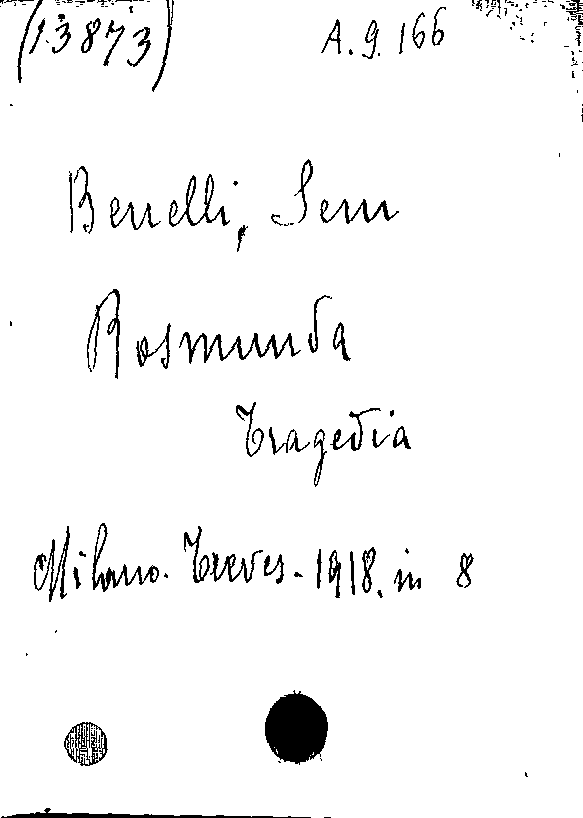 (13873) A. 9. 166
Benelli, Sem
Rosmunda
Tragedia
Milano. Treves. 1918. in 8